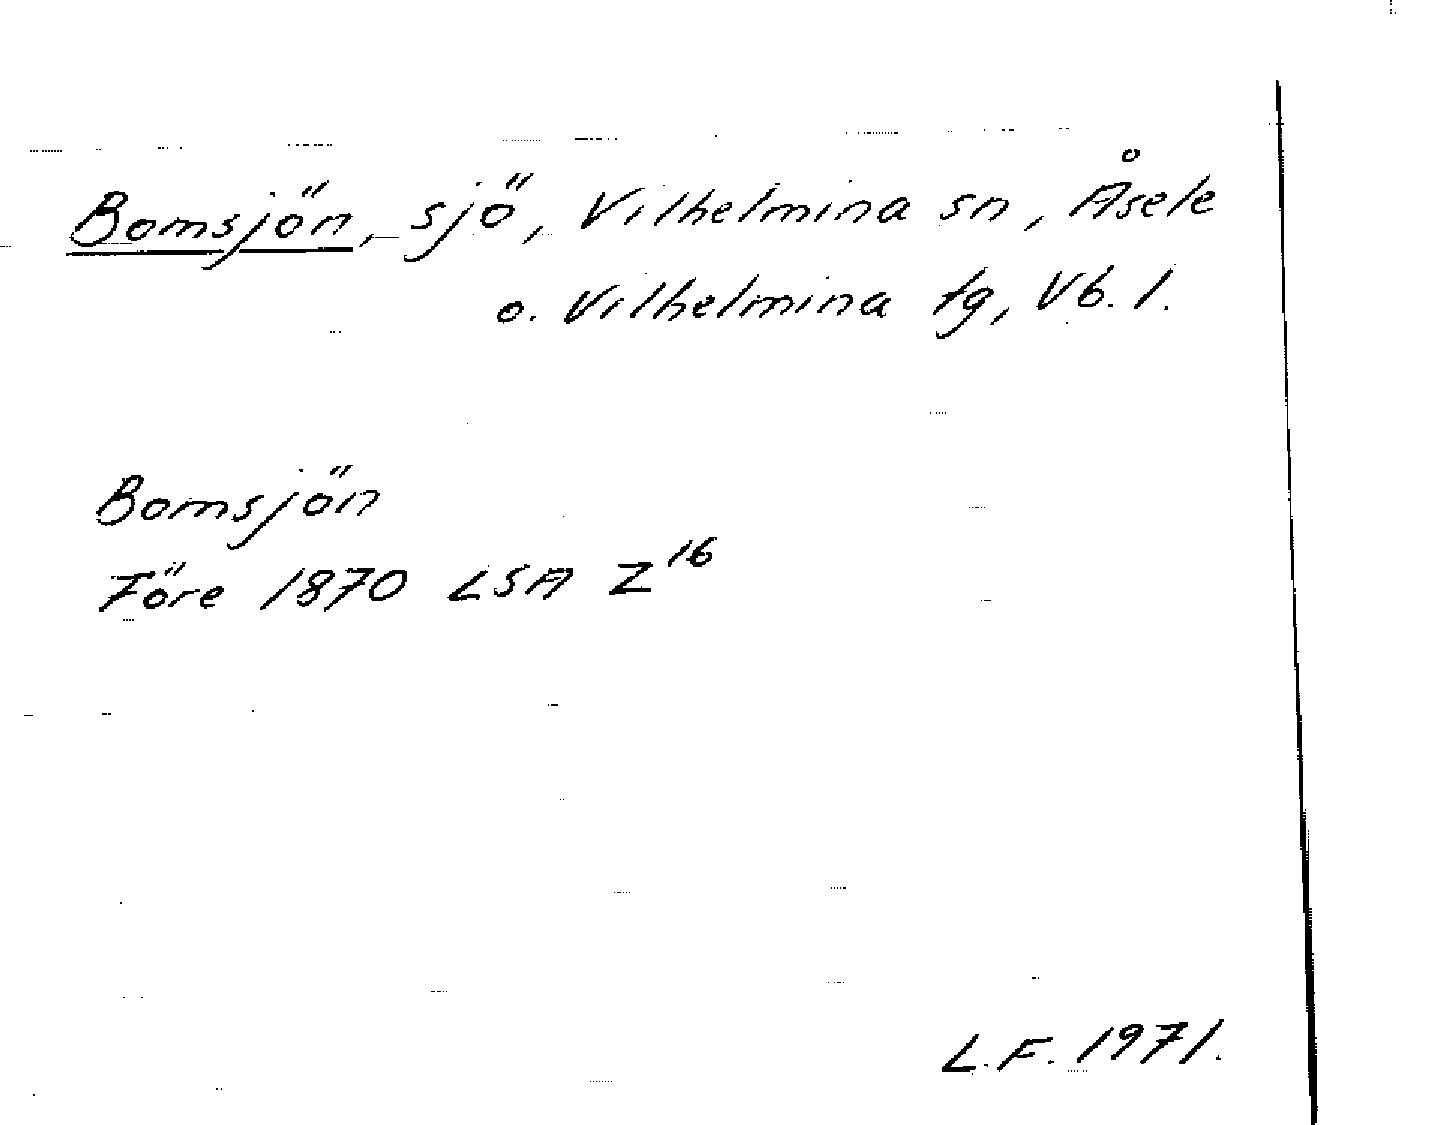 Bomsjön, sjö, Vilhelmina sn, Åsele
o. Vilhelmina tg, Vb. l.
Bomsjön
Före 1870 LSA Z16
L.F. 1971.